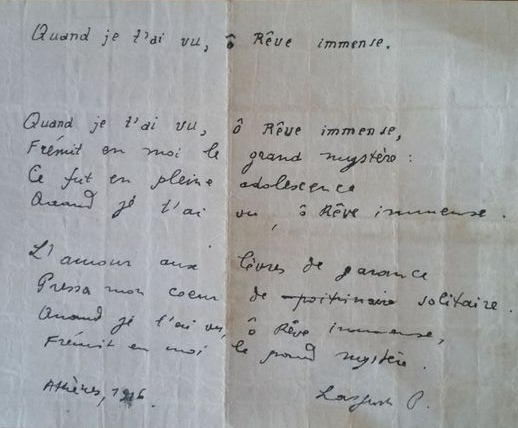 Quand je t'ai vu, ô Rêve immense.
Quand je t'ai vu, ô Rêve immense,
Frémit en moi le grand mystère :
Ce fut en pleine adolescence
Quand je t'ai vu, ô Rêve immense.
L'amour aux lèvres de garance
Pressa mon coeur de poitrinaire solitaire.
Quand je t'ai vu, ô Rêve immense,
Frémit en moi le grand mystère.
Athènes, 1916
P.